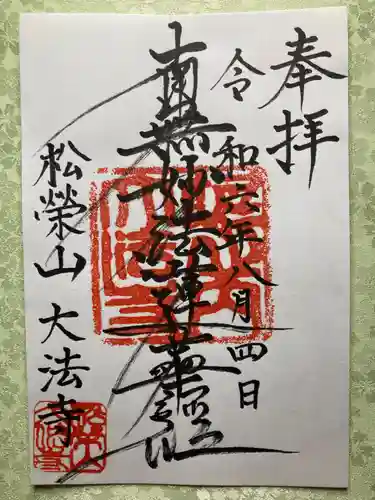 奉拝
令和六年八月四日
南無妙法蓮華經
松榮山 大法寺